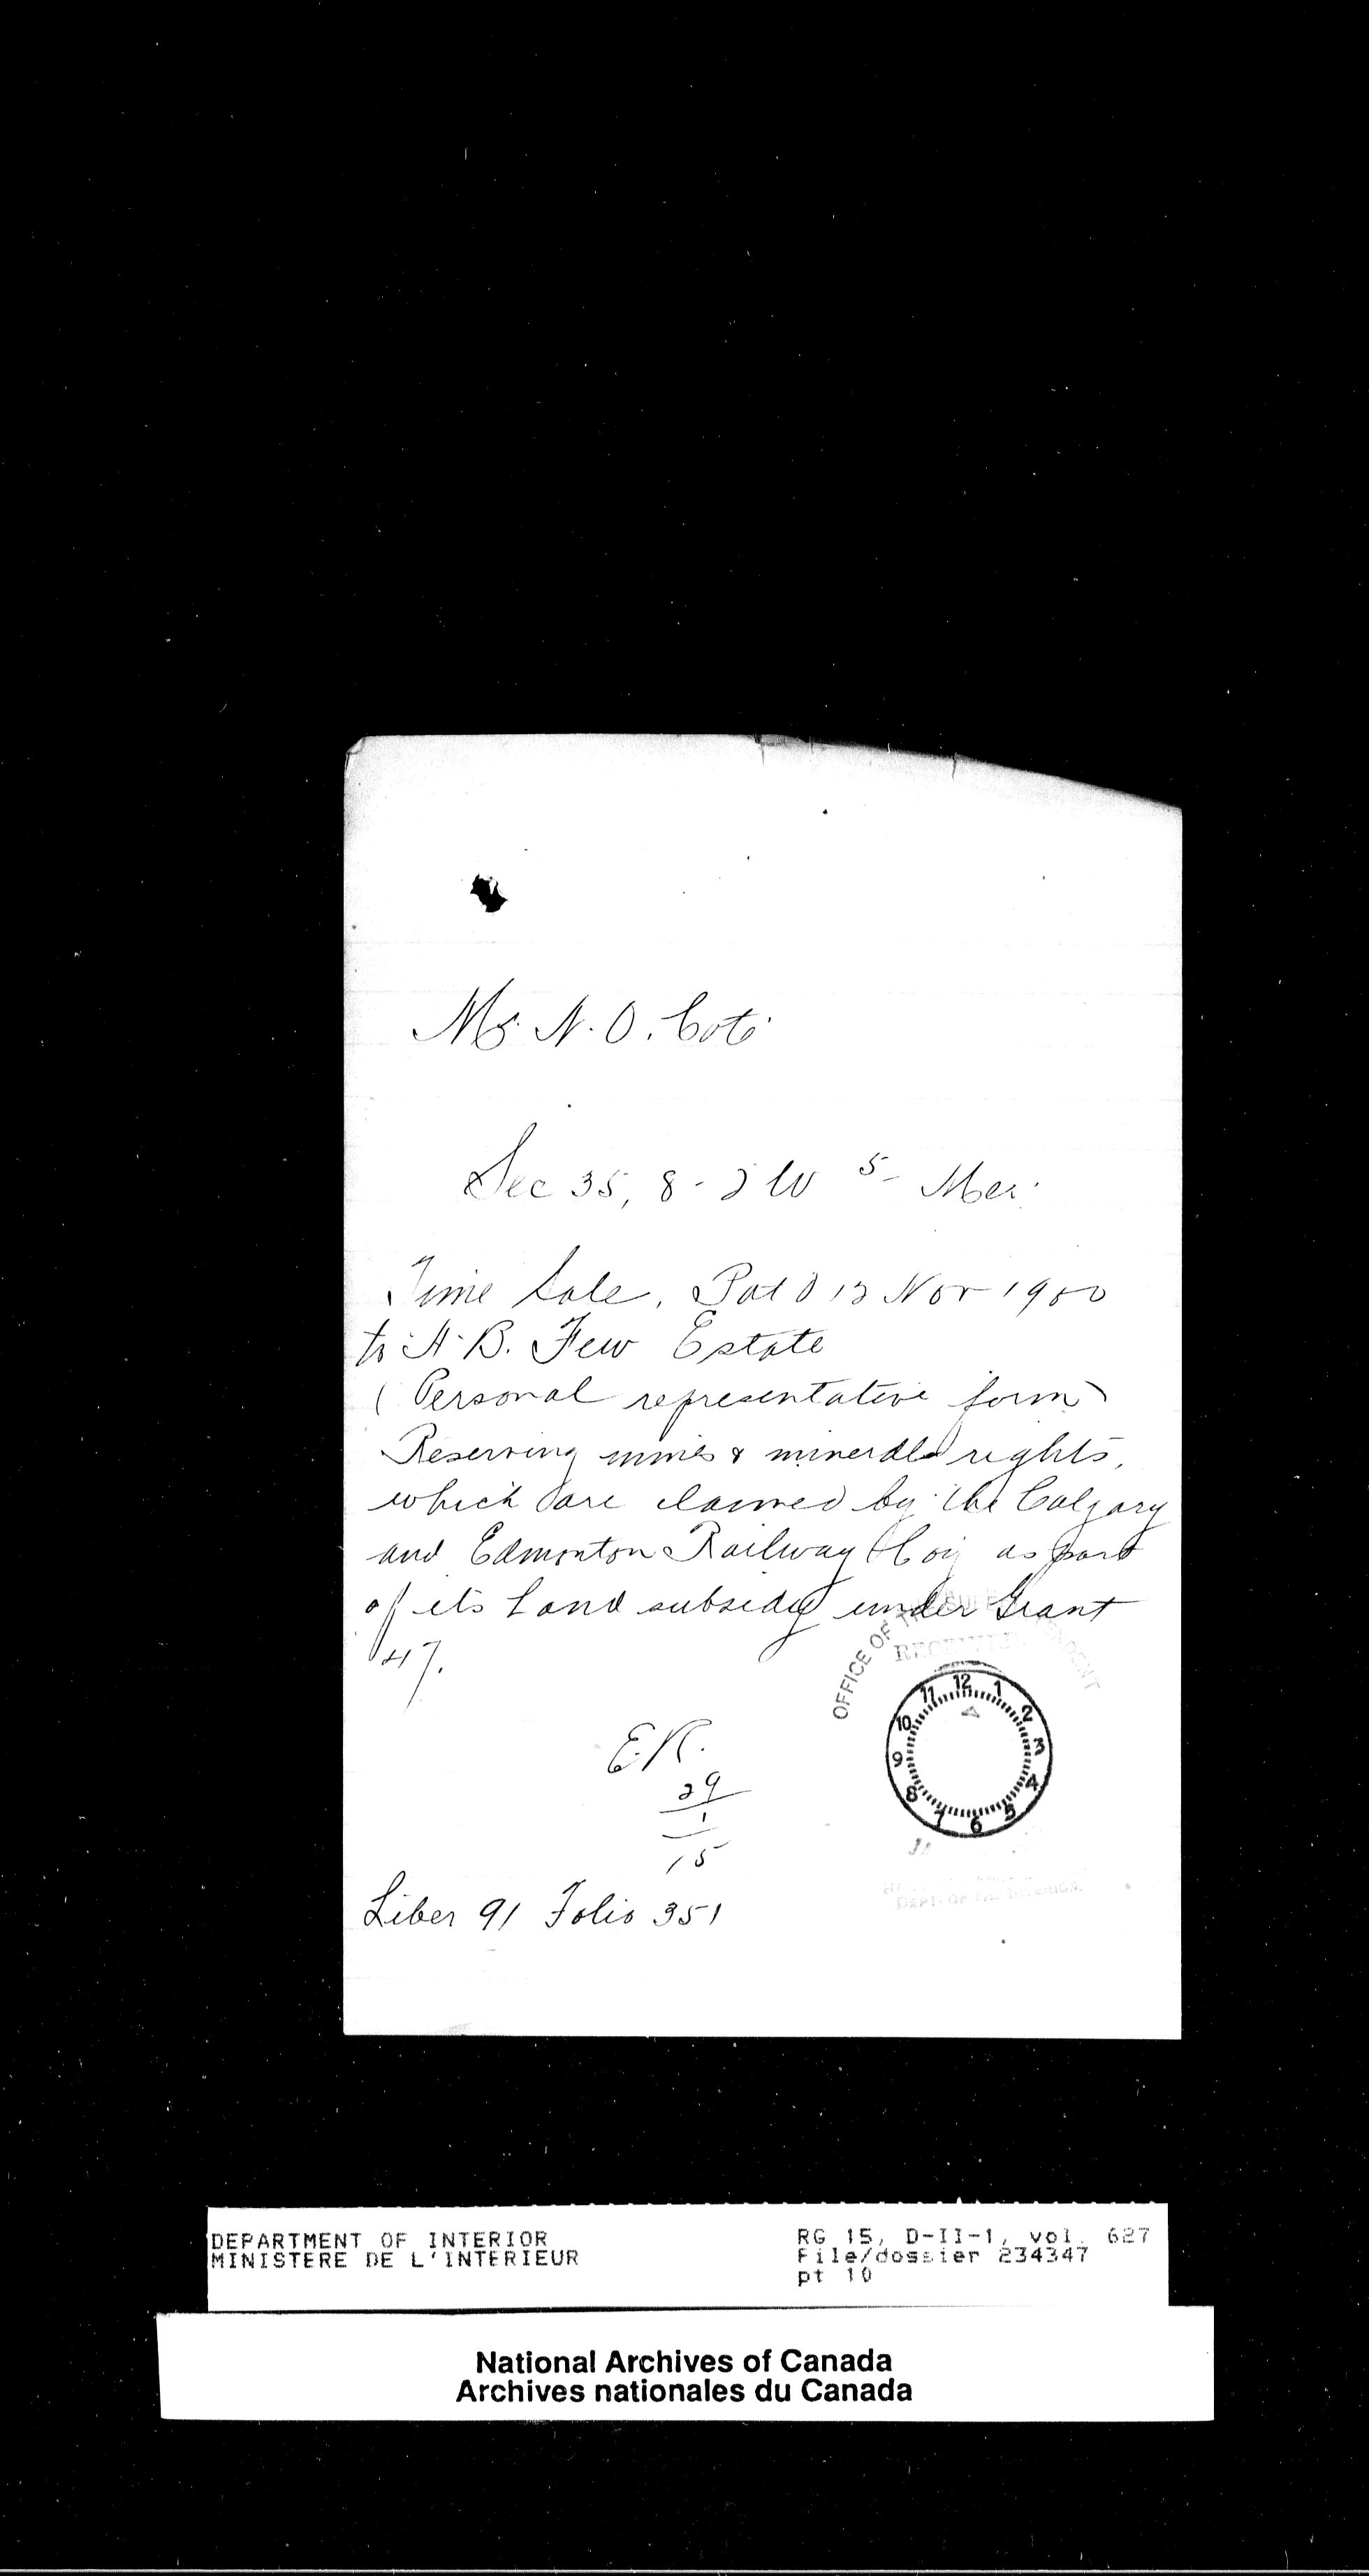 Mr. N. O. Coté
Sec 35, 8 - 2 W 5 - Mer.
Time Sale, Pat'd 12 Nov 1900
to A. B. Few Estate
(Personal representative form)
Reserving mines & minerals rights,
which are claimed by the Calgary
and Edmonton Railway Coy as part
of its Land subsidy under Grant
47.
OFFICE OF THE SUPERINTENDENT
RECEIVED
12 1 2 3 4 5 6 7 8 9 10 11
E.R.
29
1
15
DEPT. OF THE INTERIOR
Liber 91 Folio 351
DEPARTMENT OF INTERIOR
MINISTERE DE L'INTERIEUR
RG 15, D-II-1, vol. 627
File/dossier 234347
pt 10
National Archives of Canada
Archives nationales du Canada